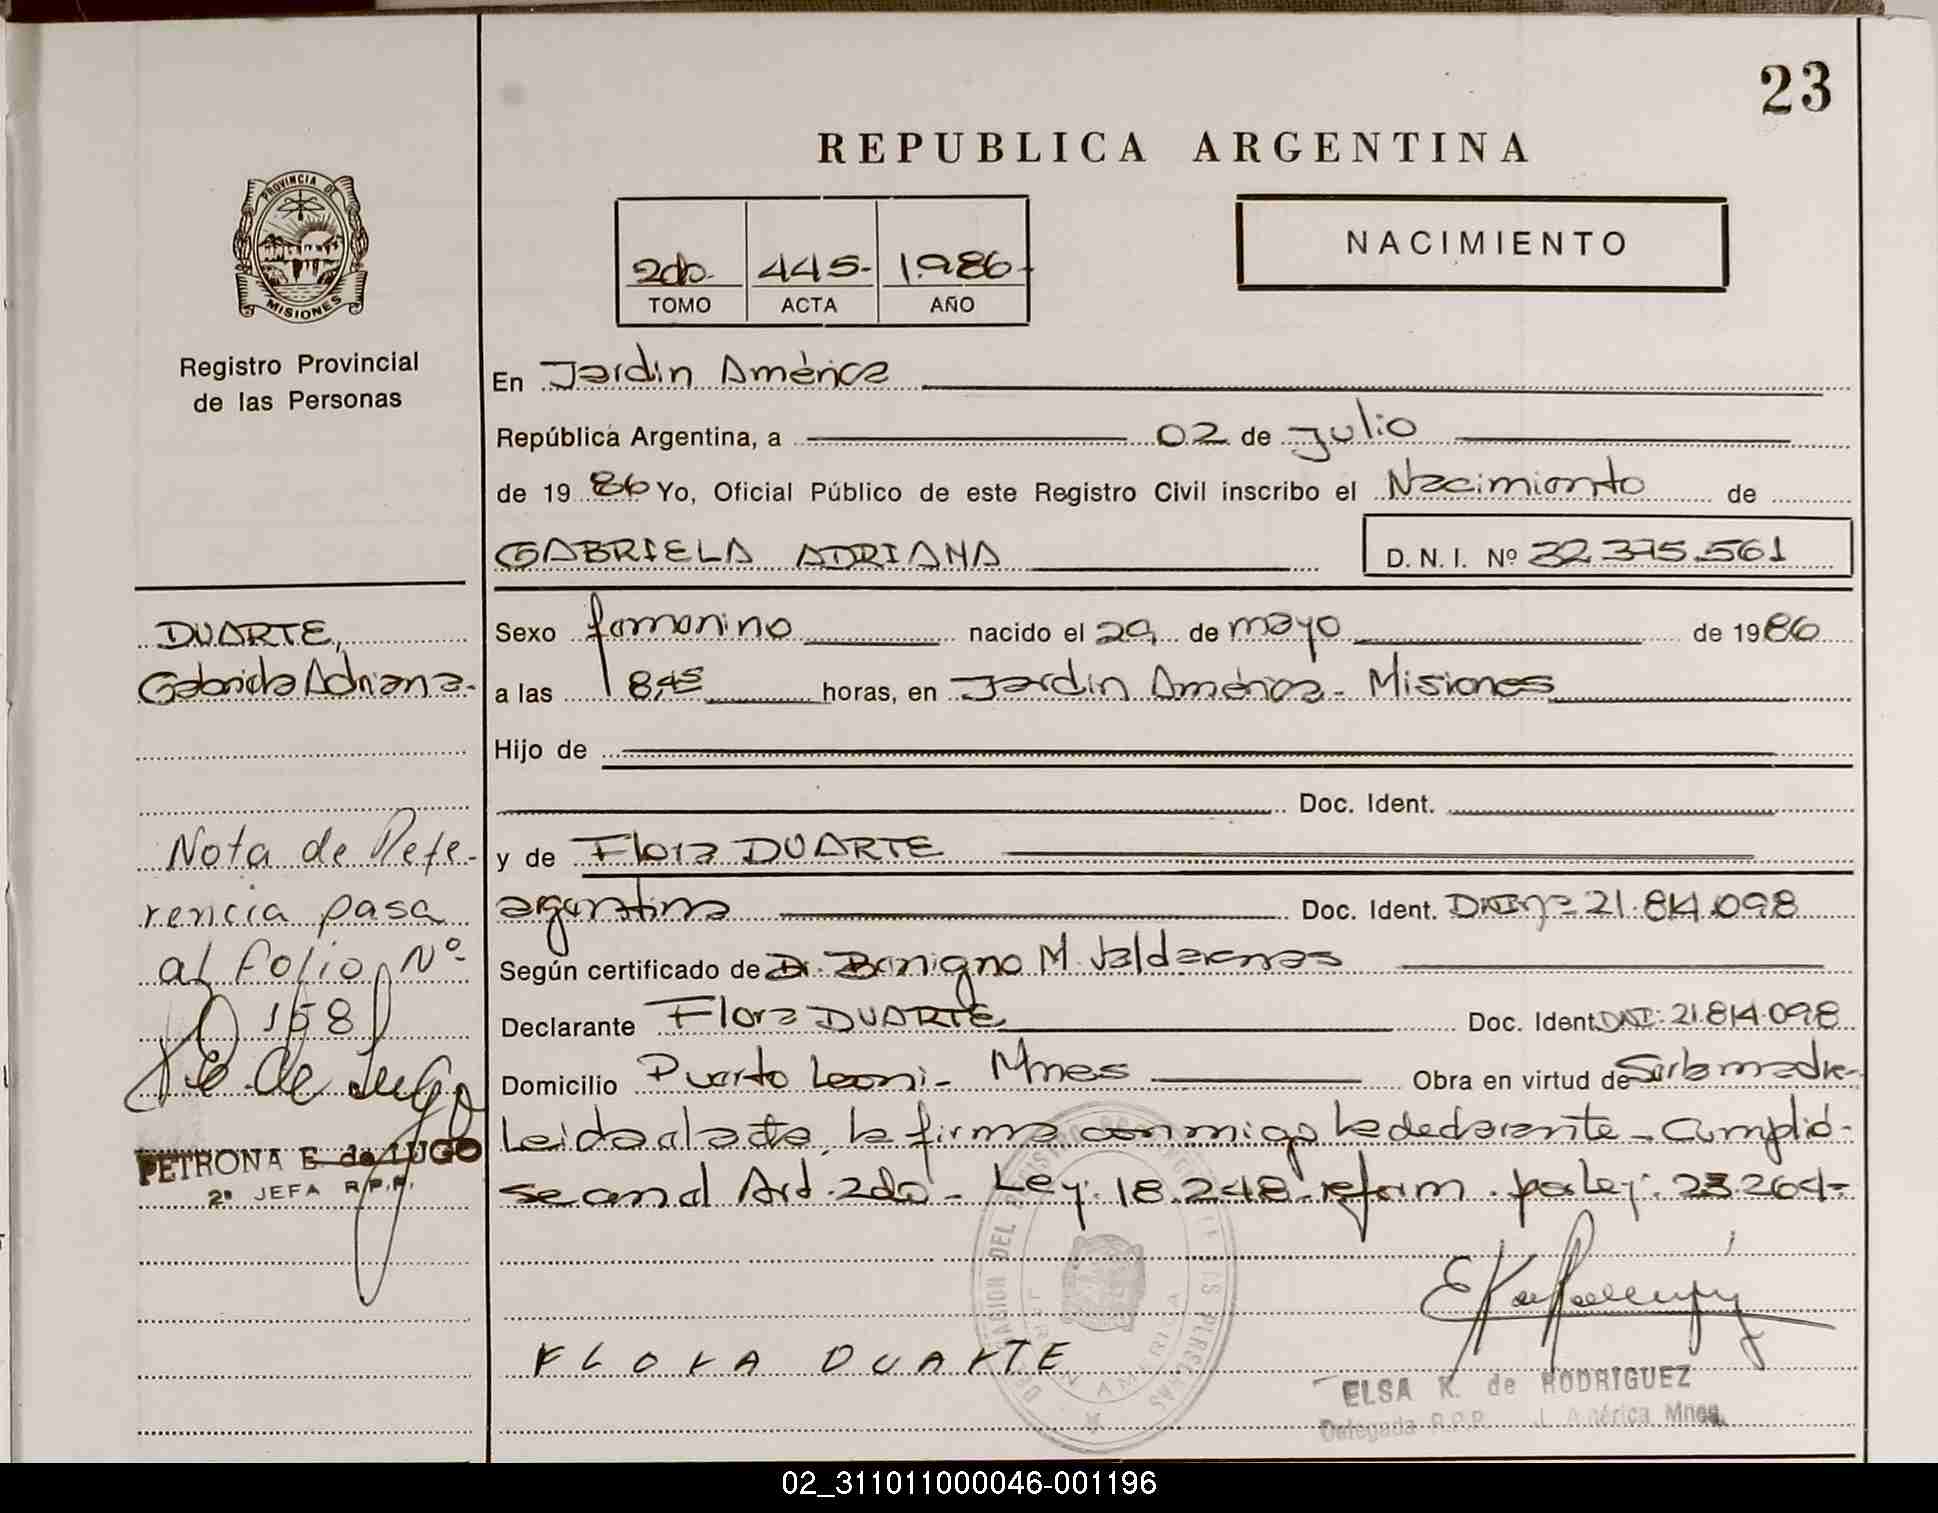 23
REPUBLICA ARGENTINA
PROVINCIA DE
MISIONES
Registro Provincial
de las Personas
2do. 445- 1.986-
TOMO ACTA AÑO
NACIMIENTO
En Jardin América
República Argentina, a 02 de Julio
de 19 86 Yo, Oficial Público de este Registro Civil inscribo el Nacimiento de
GABRIELA ADRIANA D. N. I. Nº 32.375.561
DUARTE,
Gabriela Adriana-
Sexo femenino nacido el 29 de mayo de 1986
a las 8,45 horas, en Jardin América - Misiones
Hijo de
Doc. Ident.
y de Flora DUARTE
argentina Doc. Ident. 21.814.098
Según certificado de Dr. Benigno M.
Declarante Flora DUARTE Doc. Ident. DNI: 21.814.098
Domicilio Puerto Leoni - Mnes Obra en virtud de Ser la madre-
Leida el acta, la firma conmigo la declarante - Cumplió-
se con el Art. 2do - Ley: 18.248 reform. por Ley: 23.264-
Nota de Refe-
rencia pasa
al folio Nº
158
PETRONA E. de LUGO
2ª JEFA R.P.P.
FLORA DUARTE
ELSA K. de RODRIGUEZ
Delegada R.P.P. J. América Mnes.
02_311011000046-001196